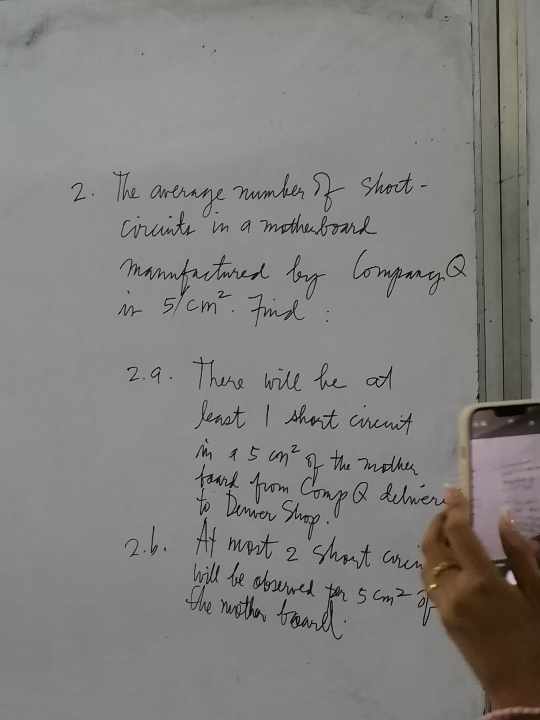 2. The average number of short-
circuits in a motherboard
manufactured by Company Q
is 5/cm². Find :
2.a. There will be at
least 1 short circuit
in a 5 cm² of the mother
board from Comp Q delivere
to Denver Shop.
2.b. At most 2 short circu
will be observed per 5 cm² of
the mother board.